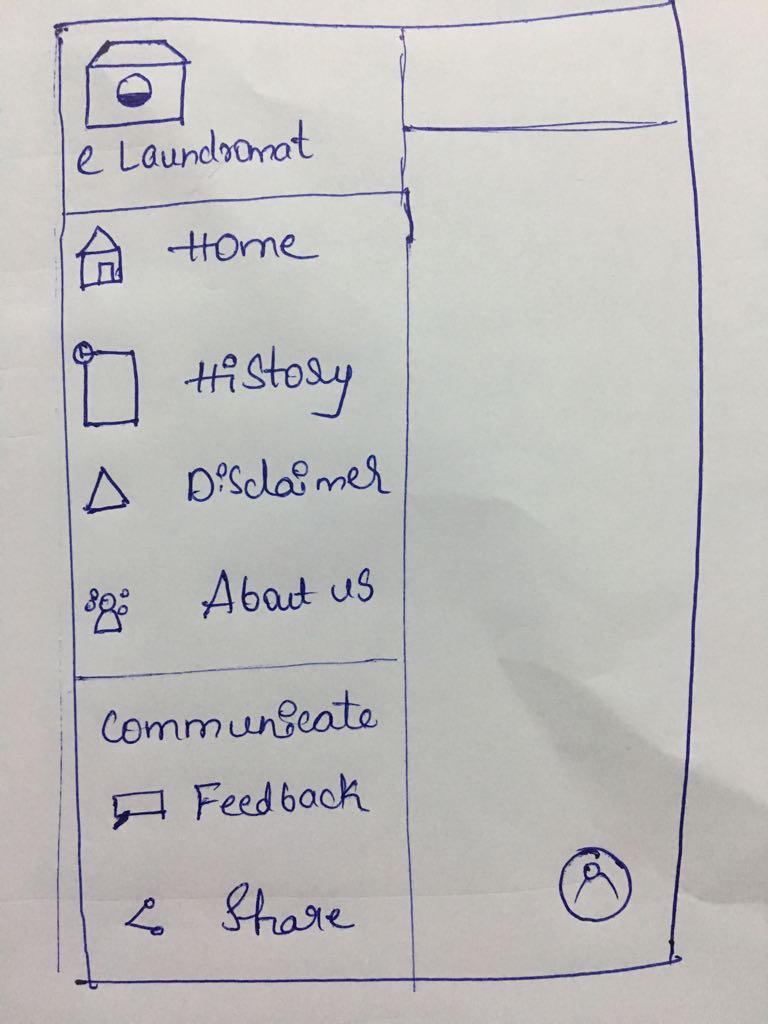 e Laundromat
Home
History
Disclaimer
About us
Communicate
Feedback
Share